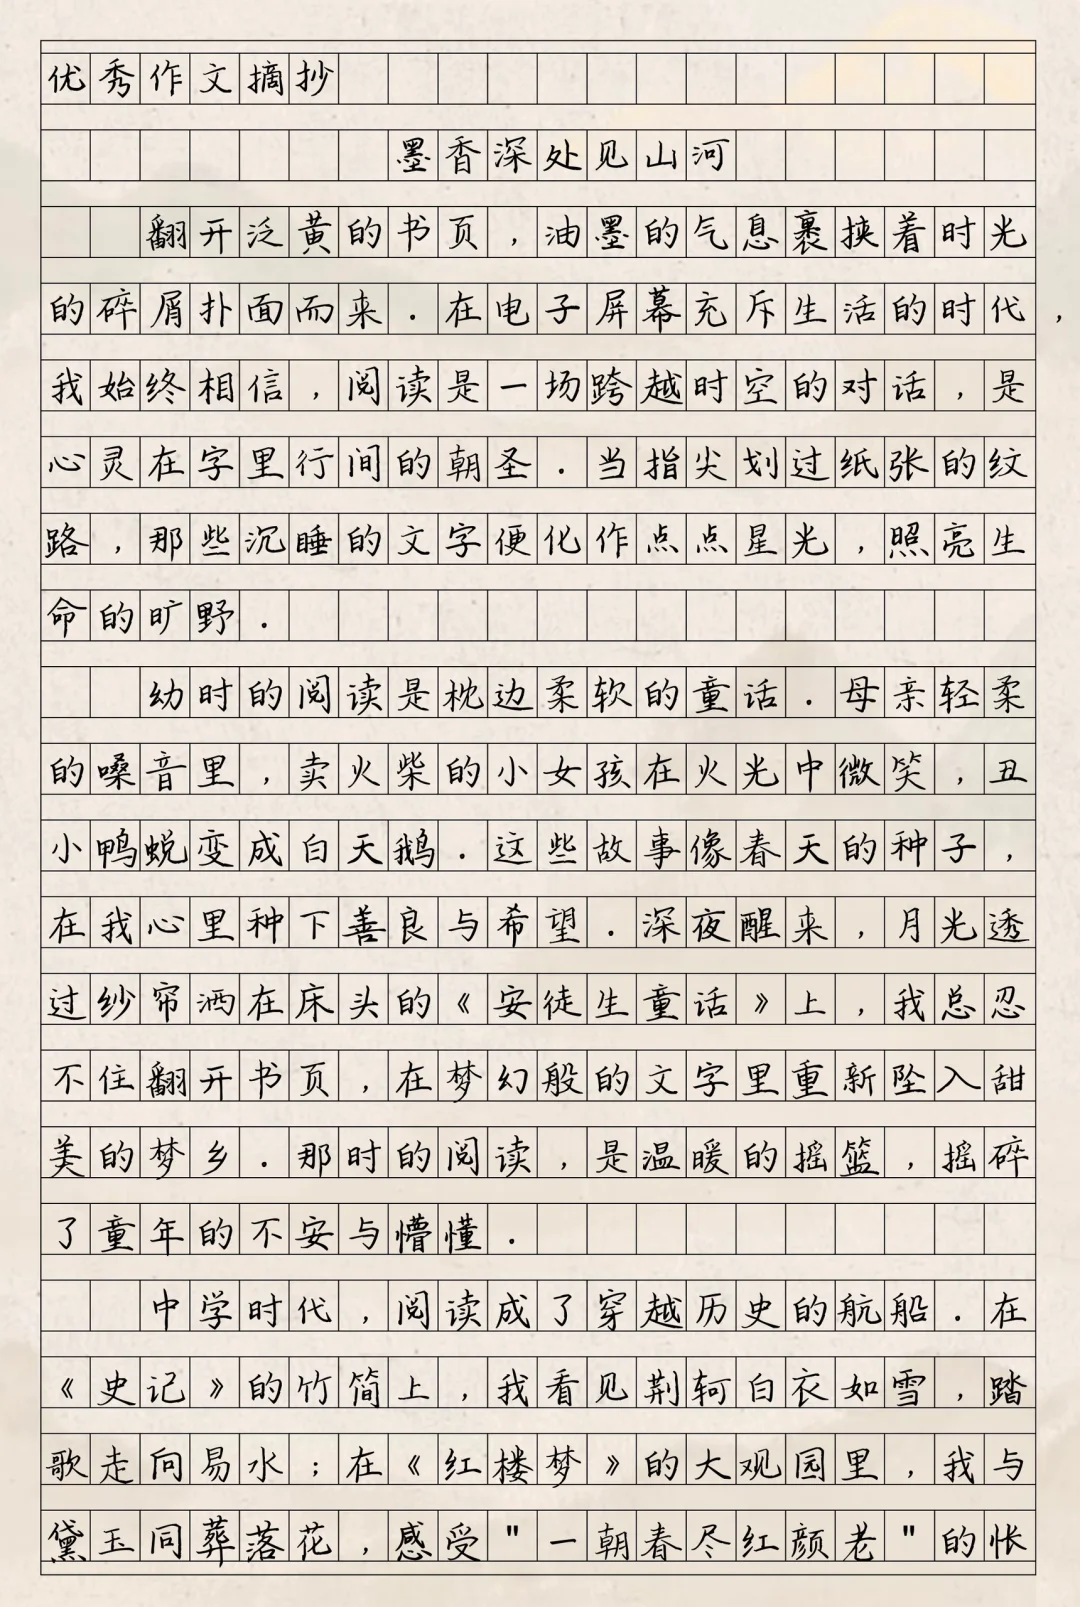 优秀作文摘抄
墨香深处见山河
翻开泛黄的书页，油墨的气息裹挟着时光
的碎屑扑面而来．在电子屏幕充斥生活的时代，
我始终相信，阅读是一场跨越时空的对话，是
心灵在字里行间的朝圣．当指尖划过纸张的纹
路，那些沉睡的文字便化作点点星光，照亮生
命的旷野．
幼时的阅读是枕边柔软的童话．母亲轻柔
的嗓音里，卖火柴的小女孩在火光中微笑，丑
小鸭蜕变成白天鹅．这些故事像春天的种子，
在我心里种下善良与希望．深夜醒来，月光透
过纱帘洒在床头的《安徒生童话》上，我总忍
不住翻开书页，在梦幻般的文字里重新坠入甜
美的梦乡．那时的阅读，是温暖的摇篮，摇碎
了童年的不安与懵懂．
中学时代，阅读成了穿越历史的航船．在
《史记》的竹简上，我看见荆轲白衣如雪，踏
歌走向易水；在《红楼梦》的大观园里，我与
黛玉同葬落花，感受"一朝春尽红颜老"的怅